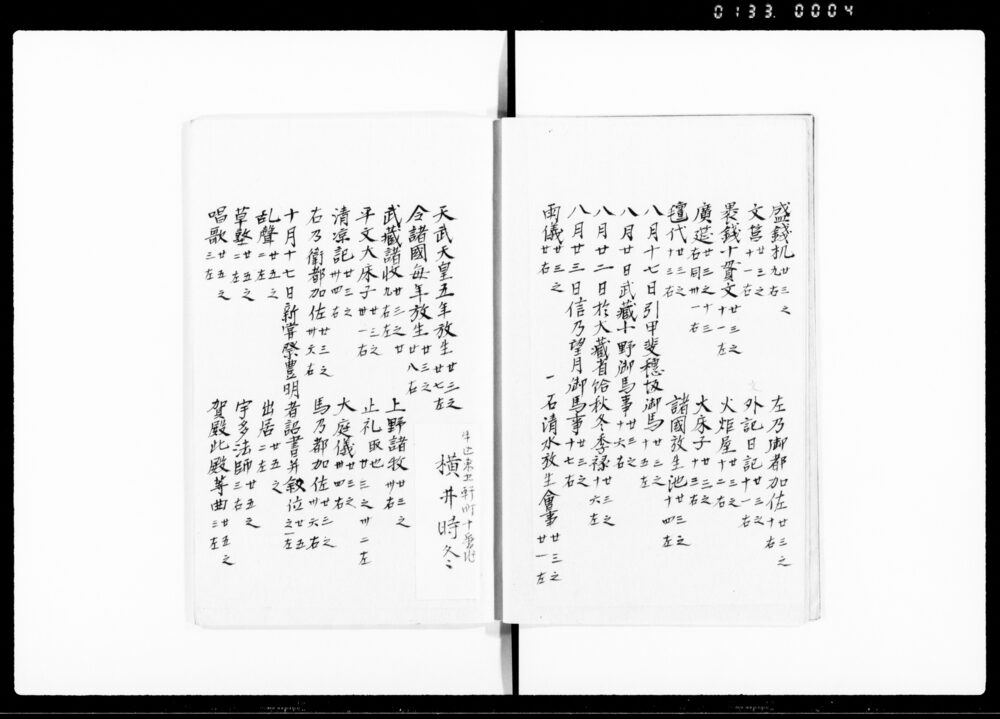 0133 0004
盛錢机 廿三之九右
左乃御都加佐 廿三之十右
文筥 廿三之十一右
外記日記 廿三之十一右
褁錢十貫文 廿三之十一左
火炬屋 廿三之十二右
廣莚 廿三之十三右同卅一右
大床子 廿三之十三右
氊代 廿三之十三右
諸國放生池 廿三之十四左
八月十七日引甲斐穗坂御馬 廿三之十五左
八月廿日武藏小野御馬事 廿三之十六右
八月廿二日於大藏省給秋冬季祿 廿三之十六左
八月廿三日信乃望月御馬事 廿三之十七右
一石清水放生會事 廿三之廿一左
雨儀 廿三之廿右
天武天皇五年放生 廿三之廿七左
令諸國每年放生 廿三之廿八右
橫井時冬
武藏諸牧 廿三之廿九右左
上野諸牧 廿三之卅右
平文大床子 廿三之卅一右
止礼取也 廿三之卅二左
清凉記 廿三之卅四右
大庭儀 廿三之卅四右
右乃衛都加佐 廿三之卅六右
馬乃都加佐 廿三之卅六右
十月十七日新嘗祭豊明者詔書并敘位 廿五之一左
乱聲 廿五之二左
出居 廿五之二左
草墪 廿五之二左
宇多法師 廿五之三右
唱歌 廿五之三左
賀殿此殿等曲 廿五之三左